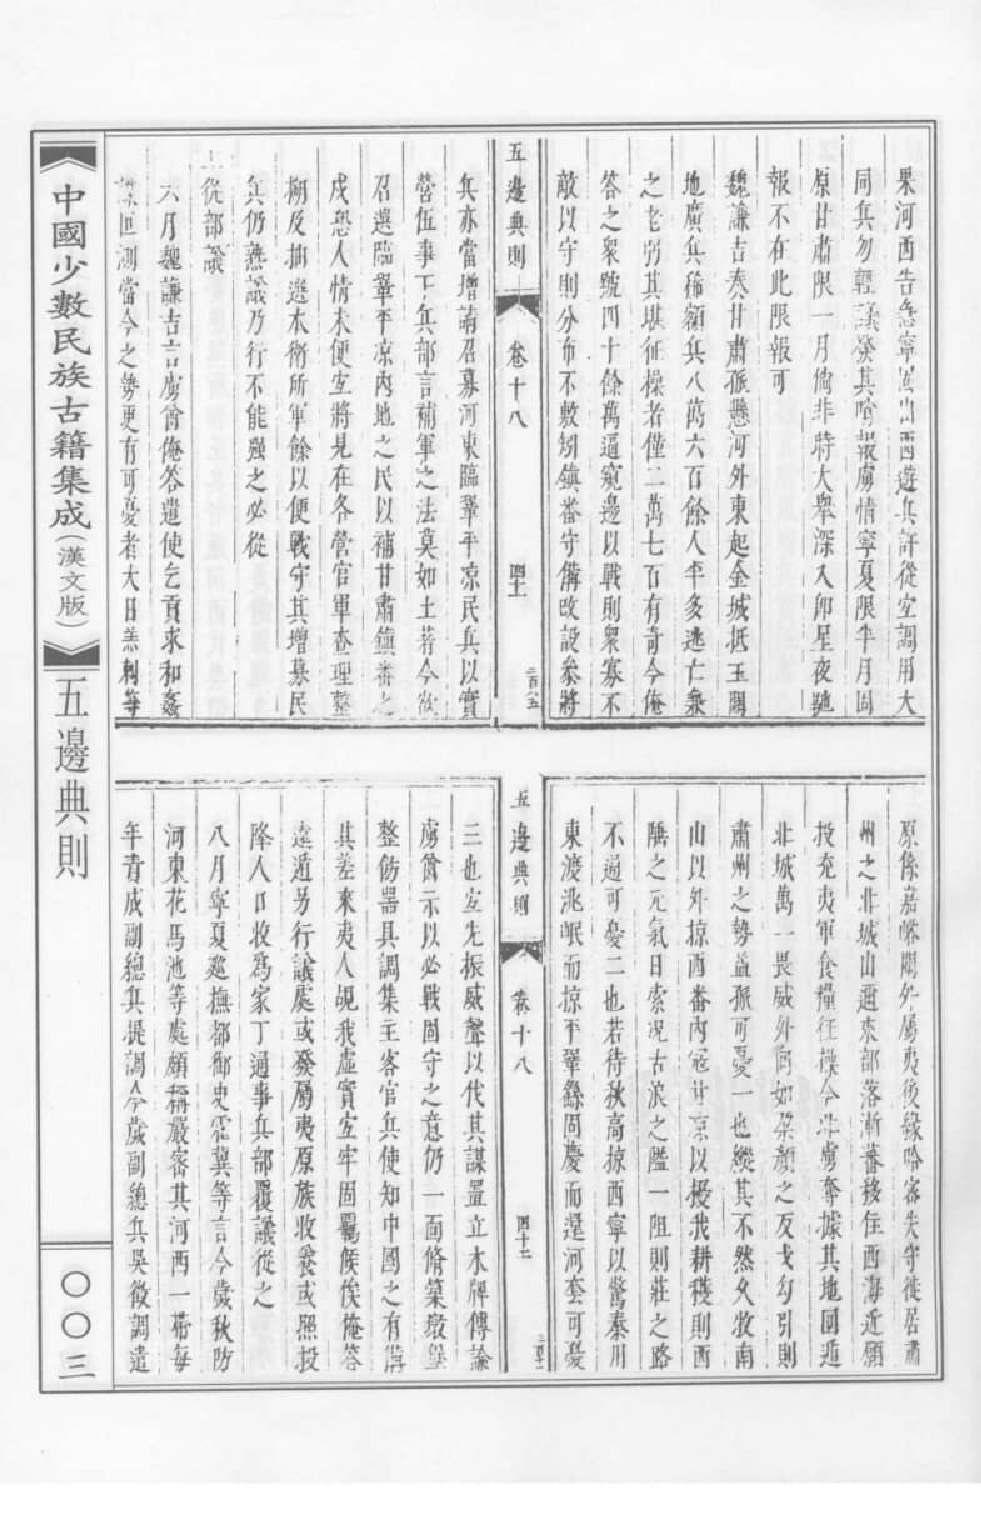 果河西告急寧山西遊兵許從空調用大
同兵勿輕議發其哨報虜情寧夏限半月固
原甘肅限一月倘非特大舉深入卽星夜馳
報不在此限報可
魏謙吉奏甘肅孤懸河外東起金城抵玉關
地廣兵稀額兵八萬六百餘人半多逃亡兼
之老弱其堪征操者僅二萬七百有奇今俺
答之衆號四十餘萬逼窺邊以戰則衆寡不
敵以守則分布不敷矧鎮番守備改設叅將
五邊典則
卷十八
四十一
兵亦當增請召募河東臨鞏平凉民兵以實
營伍事下兵部言補軍之法莫如土著今欲
召選臨鞏平凉內地之民以補甘肅鎮番之
戍恐人情未便宜將見在各營官軍查理整
搠及揀選本衛所軍餘以便戰守其增募民
兵仍熟議乃行不能强之必從
從部議
六月魏謙吉言虜酋俺答遣使乞貢求和姦
謀叵測當今之勢更有可憂者大日羔剌等
原係嘉峪關外屬夷後緣哈密失守徙居肅
州之北城山邇來部落漸蕃移住西海近願
投充夷軍食糧征操今北虜奪據其地圖逃
北城萬一畏威外向如柰顏之反戈勾引則
肅州之勢益孤可憂一也縱其不然久牧南
山以外掠西番內寇甘凉以擾我耕穫則西
陲之元氣日索況古浪之隘一阻則莊之路
不通可憂二也若待秋高掠西寧以驚秦川
東渡洮岷而掠平鞏繇固慶而還河套可憂
五邊典則
卷十八
四十二
三也宜先振威聲以伐其謀置立木牌傳諭
虜酋示以必戰固守之意仍一面脩築墩堡
整飭器具調集主客官兵使知中國之有備
其差來夷人覘我虛實宜牢固羈候俟俺答
遠遁另行議處或發屬夷原族收養或照投
降人口收爲家丁通事兵部覆議從之
八月寧夏廵撫都御史霍冀等言今歲秋防
河東花馬池等處頗稱嚴密其河西一帶每
年青成副總兵提調今歲副總兵吳徵調遣
中國少數民族古籍集成（漢文版）
五邊典則
〇〇三